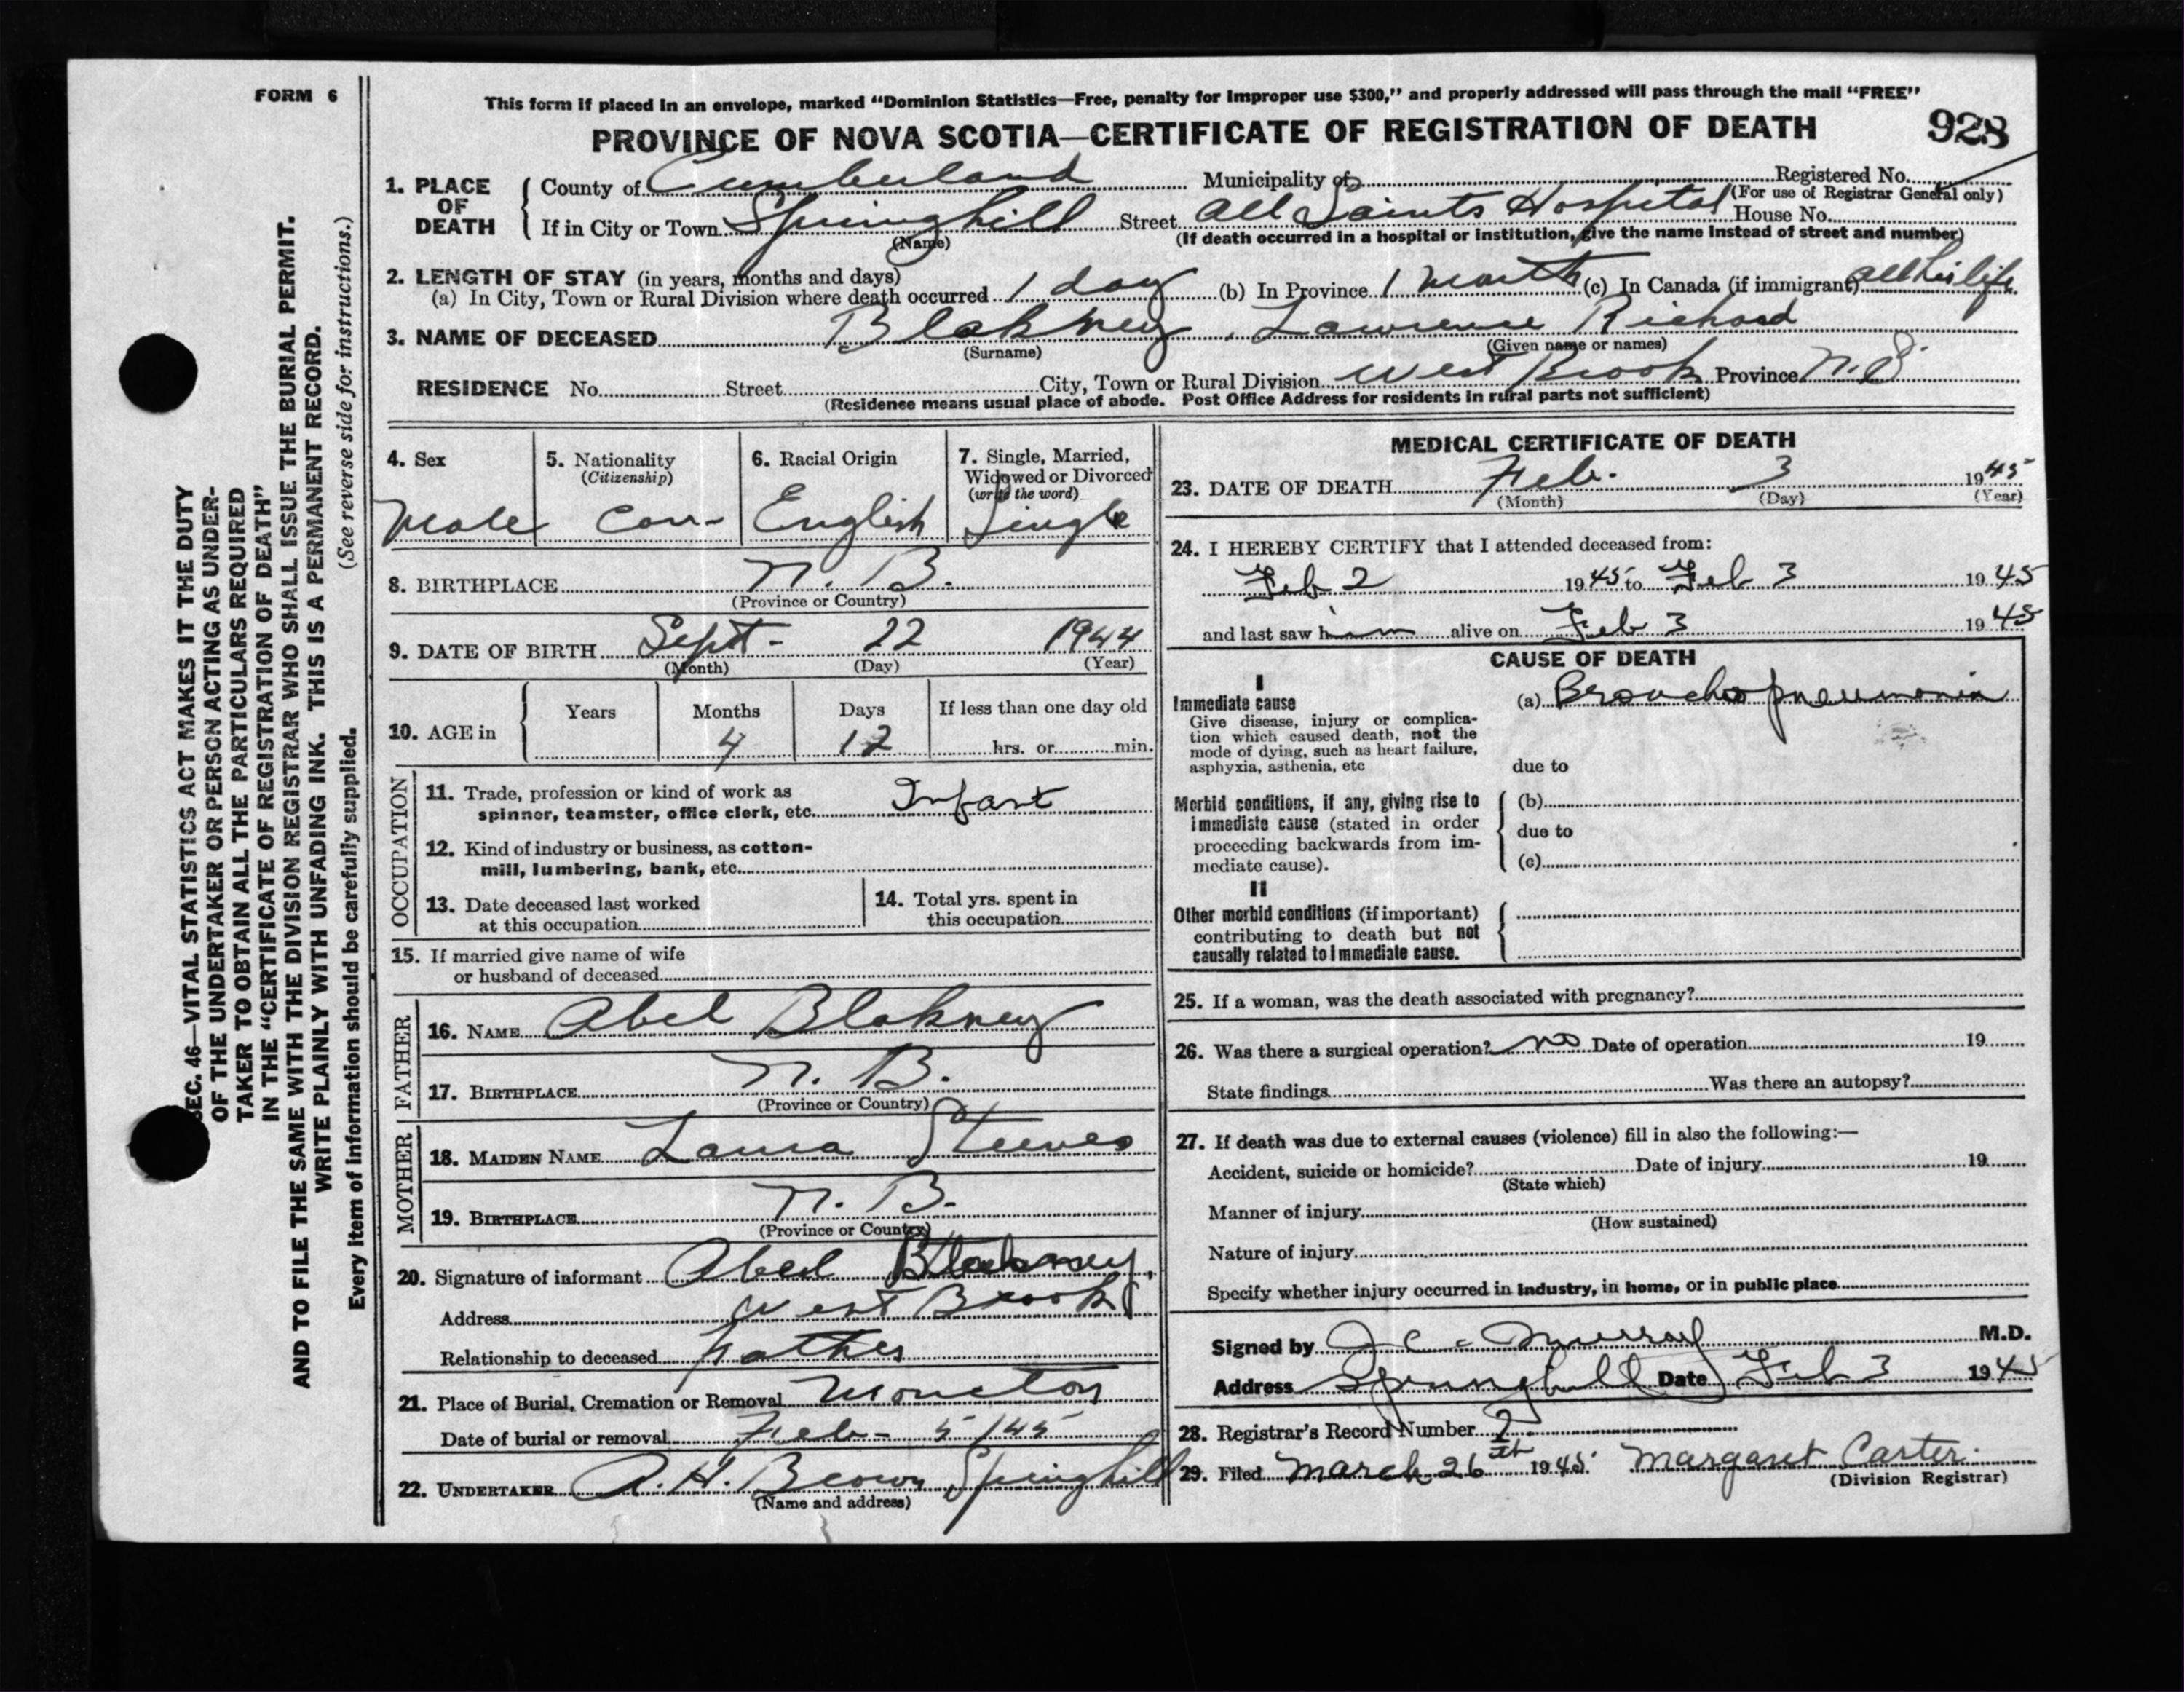 FORM 6
SEC. 46—VITAL STATISTICS ACT MAKES IT THE DUTY
OF THE UNDERTAKER OR PERSON ACTING AS UNDER-
TAKER TO OBTAIN ALL THE PARTICULARS REQUIRED
IN THE "CERTIFICATE OF REGISTRATION OF DEATH"
AND TO FILE THE SAME WITH THE DIVISION REGISTRAR WHO SHALL ISSUE THE BURIAL PERMIT.
WRITE PLAINLY WITH UNFADING INK. THIS IS A PERMANENT RECORD.
Every item of information should be carefully supplied. (See reverse side for instructions.)
This form if placed in an envelope, marked "Dominion Statistics—Free, penalty for improper use $300," and properly addressed will pass through the mail "FREE"
PROVINCE OF NOVA SCOTIA—CERTIFICATE OF REGISTRATION OF DEATH 928
1. PLACE OF DEATH County of Cumberland Municipality of Registered No.
(For use of Registrar General only)
If in City or Town Springhill Street All Saints Hospital House No.
(Name) (If death occurred in a hospital or institution, give the name instead of street and number)
2. LENGTH OF STAY (in years, months and days)
(a) In City, Town or Rural Division where death occurred 1 day (b) In Province 1 month (c) In Canada (if immigrant) all his life
3. NAME OF DECEASED Blakney, Lawrence Richard
(Surname) (Given name or names)
RESIDENCE No. Street City, Town or Rural Division West Brook Province N.S.
(Residence means usual place of abode. Post Office Address for residents in rural parts not sufficient)
4. Sex
Male
5. Nationality
(Citizenship)
Can-
6. Racial Origin
English
7. Single, Married,
Widowed or Divorced
(write the word)
Single
8. BIRTHPLACE N. B.
(Province or Country)
9. DATE OF BIRTH Sept- 22 1944
(Month) (Day) (Year)
10. AGE in Years Months Days If less than one day old
4 12 hrs. or min.
OCCUPATION
11. Trade, profession or kind of work as
spinner, teamster, office clerk, etc. Infant
12. Kind of industry or business, as cotton-
mill, lumbering, bank, etc.
13. Date deceased last worked
at this occupation
14. Total yrs. spent in
this occupation
15. If married give name of wife
or husband of deceased
FATHER
16. NAME Abel Blakney
17. BIRTHPLACE N. B.
(Province or Country)
MOTHER
18. MAIDEN NAME Laura Steeves
19. BIRTHPLACE N. B.
(Province or Country)
20. Signature of informant Abel Blakney
Address West Brook
Relationship to deceased Father
21. Place of Burial, Cremation or Removal Moncton
Date of burial or removal Feb- 5/45
22. UNDERTAKER A. H. Brown Springhill
(Name and address)
MEDICAL CERTIFICATE OF DEATH
23. DATE OF DEATH Feb. 3 1945
(Month) (Day) (Year)
24. I HEREBY CERTIFY that I attended deceased from:
Feb 2 1945 to Feb 3 1945
and last saw him alive on Feb 3 1945
CAUSE OF DEATH
I
Immediate cause
Give disease, injury or complica-
tion which caused death, not the
mode of dying, such as heart failure,
asphyxia, asthenia, etc
(a) Bronchopneumonia
due to
Morbid conditions, if any, giving rise to
immediate cause (stated in order
proceeding backwards from im-
mediate cause).
(b)
due to
(c)
II
Other morbid conditions (if important)
contributing to death but not
causally related to immediate cause.
25. If a woman, was the death associated with pregnancy?
26. Was there a surgical operation? no Date of operation 19
State findings Was there an autopsy?
27. If death was due to external causes (violence) fill in also the following:—
Accident, suicide or homicide? Date of injury 19
(State which)
Manner of injury
(How sustained)
Nature of injury
Specify whether injury occurred in industry, in home, or in public place
Signed by J C Murray M.D.
Address Springhill Date Feb 3 1945
28. Registrar's Record Number 2
29. Filed March 26th 1945. Margaret Carter.
(Division Registrar)